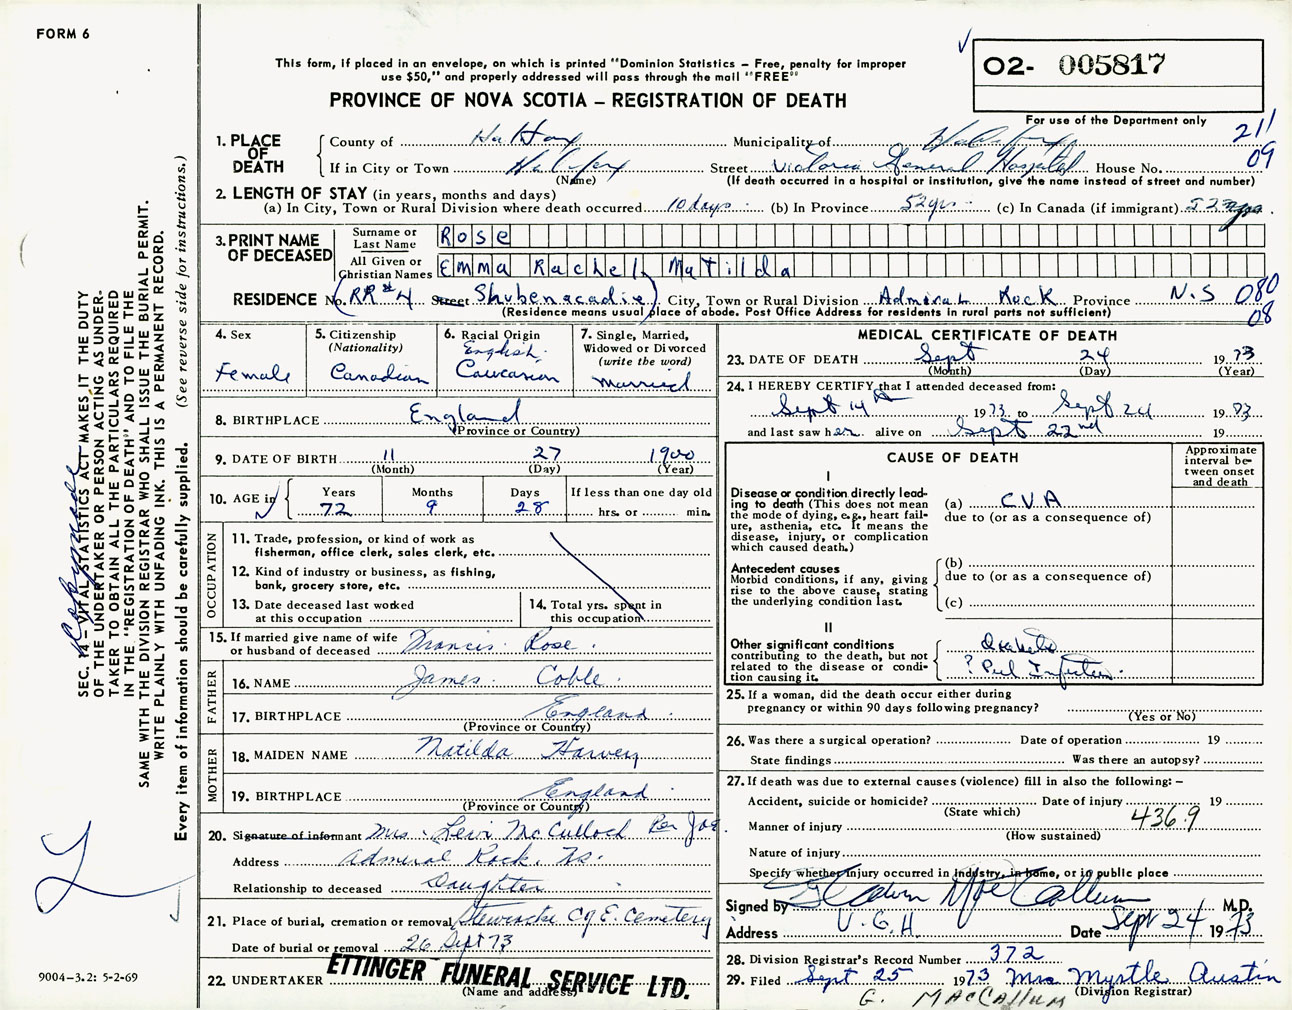 FORM 6
02- 005817
For use of the Department only
211
09
This form, if placed in an envelope, on which is printed "Dominion Statistics – Free, penalty for improper
use $50," and properly addressed will pass through the mail "FREE"
PROVINCE OF NOVA SCOTIA – REGISTRATION OF DEATH
1. PLACE OF DEATH County of Halifax Municipality of Halifax
If in City or Town Halifax Street Victoria General Hospital House No.
(Name) (If death occurred in a hospital or institution, give the name instead of street and number)
2. LENGTH OF STAY (in years, months and days)
(a) In City, Town or Rural Division where death occurred 10 days (b) In Province 52 yrs (c) In Canada (if immigrant) 52 yrs
3. PRINT NAME OF DECEASED
Surname or Last Name Rose
All Given or Christian Names Emma Rachel Matilda
RESIDENCE No. (RR #4 Street Shubenacadie) City, Town or Rural Division Admiral Rock Province N.S 080
08
(Residence means usual place of abode. Post Office Address for residents in rural parts not sufficient)
4. Sex
Female
5. Citizenship
(Nationality)
Canadian
6. Racial Origin
English
Caucasian
7. Single, Married,
Widowed or Divorced
(write the word)
married
8. BIRTHPLACE England
(Province or Country)
9. DATE OF BIRTH 11 27 1900
(Month) (Day) (Year)
10. AGE in Years 72 Months 9 Days 28 If less than one day old
hrs. or min.
OCCUPATION
11. Trade, profession, or kind of work as
fisherman, office clerk, sales clerk, etc.
12. Kind of industry or business, as fishing,
bank, grocery store, etc.
13. Date deceased last worked
at this occupation
14. Total yrs. spent in
this occupation
15. If married give name of wife
or husband of deceased Francis Rose
FATHER
16. NAME James Coble
17. BIRTHPLACE England
(Province or Country)
MOTHER
18. MAIDEN NAME Matilda Harvey
19. BIRTHPLACE England
(Province or Country)
20. Signature of informant Mrs. Levi McCulloch Per Joe
Address Admiral Rock. NS.
Relationship to deceased Daughter
21. Place of burial, cremation or removal Stewiacke C of E. Cemetery
Date of burial or removal 26 Sept 73
22. UNDERTAKER ETTINGER FUNERAL SERVICE LTD.
(Name and address)
MEDICAL CERTIFICATE OF DEATH
23. DATE OF DEATH Sept 24 1973
(Month) (Day) (Year)
24. I HEREBY CERTIFY that I attended deceased from:
Sept 14th 1973 to Sept 24 1973
and last saw her alive on Sept 22nd 19
CAUSE OF DEATH
Approximate
interval be-
tween onset
and death
I
Disease or condition directly lead-
ing to death (This does not mean
the mode of dying, e.g., heart fail-
ure, asthenia, etc. It means the
disease, injury, or complication
which caused death.)
(a) C.V.A
due to (or as a consequence of)
Antecedent causes
Morbid conditions, if any, giving
rise to the above cause, stating
the underlying condition last.
(b)
due to (or as a consequence of)
(c)
II
Other significant conditions
contributing to the death, but not
related to the disease or condi-
tion causing it.
Diabetes
? Pul Infection.
25. If a woman, did the death occur either during
pregnancy or within 90 days following pregnancy?
(Yes or No)
26. Was there a surgical operation? Date of operation 19
State findings Was there an autopsy?
27. If death was due to external causes (violence) fill in also the following: –
Accident, suicide or homicide? Date of injury 19
(State which)
Manner of injury 436.9
(How sustained)
Nature of injury
Specify whether injury occurred in industry, in home, or in public place
Signed by M.D.
Address V.G.H Date Sept 24 1973
28. Division Registrar's Record Number 372
29. Filed Sept 25 1973 Mrs Myrtle Austin
(Division Registrar)
G. MacCallum
SEC. 14 – VITAL STATISTICS ACT MAKES IT THE DUTY
OF THE UNDERTAKER OR PERSON ACTING AS UNDER-
TAKER TO OBTAIN ALL THE PARTICULARS REQUIRED
IN THE "REGISTRATION OF DEATH" AND TO FILE THE
SAME WITH THE DIVISION REGISTRAR WHO SHALL ISSUE THE BURIAL PERMIT.
WRITE PLAINLY WITH UNFADING INK. THIS IS A PERMANENT RECORD.
Every item of information should be carefully supplied. (See reverse side for instructions.)
Copy made
9004–3.2: 5-2-69